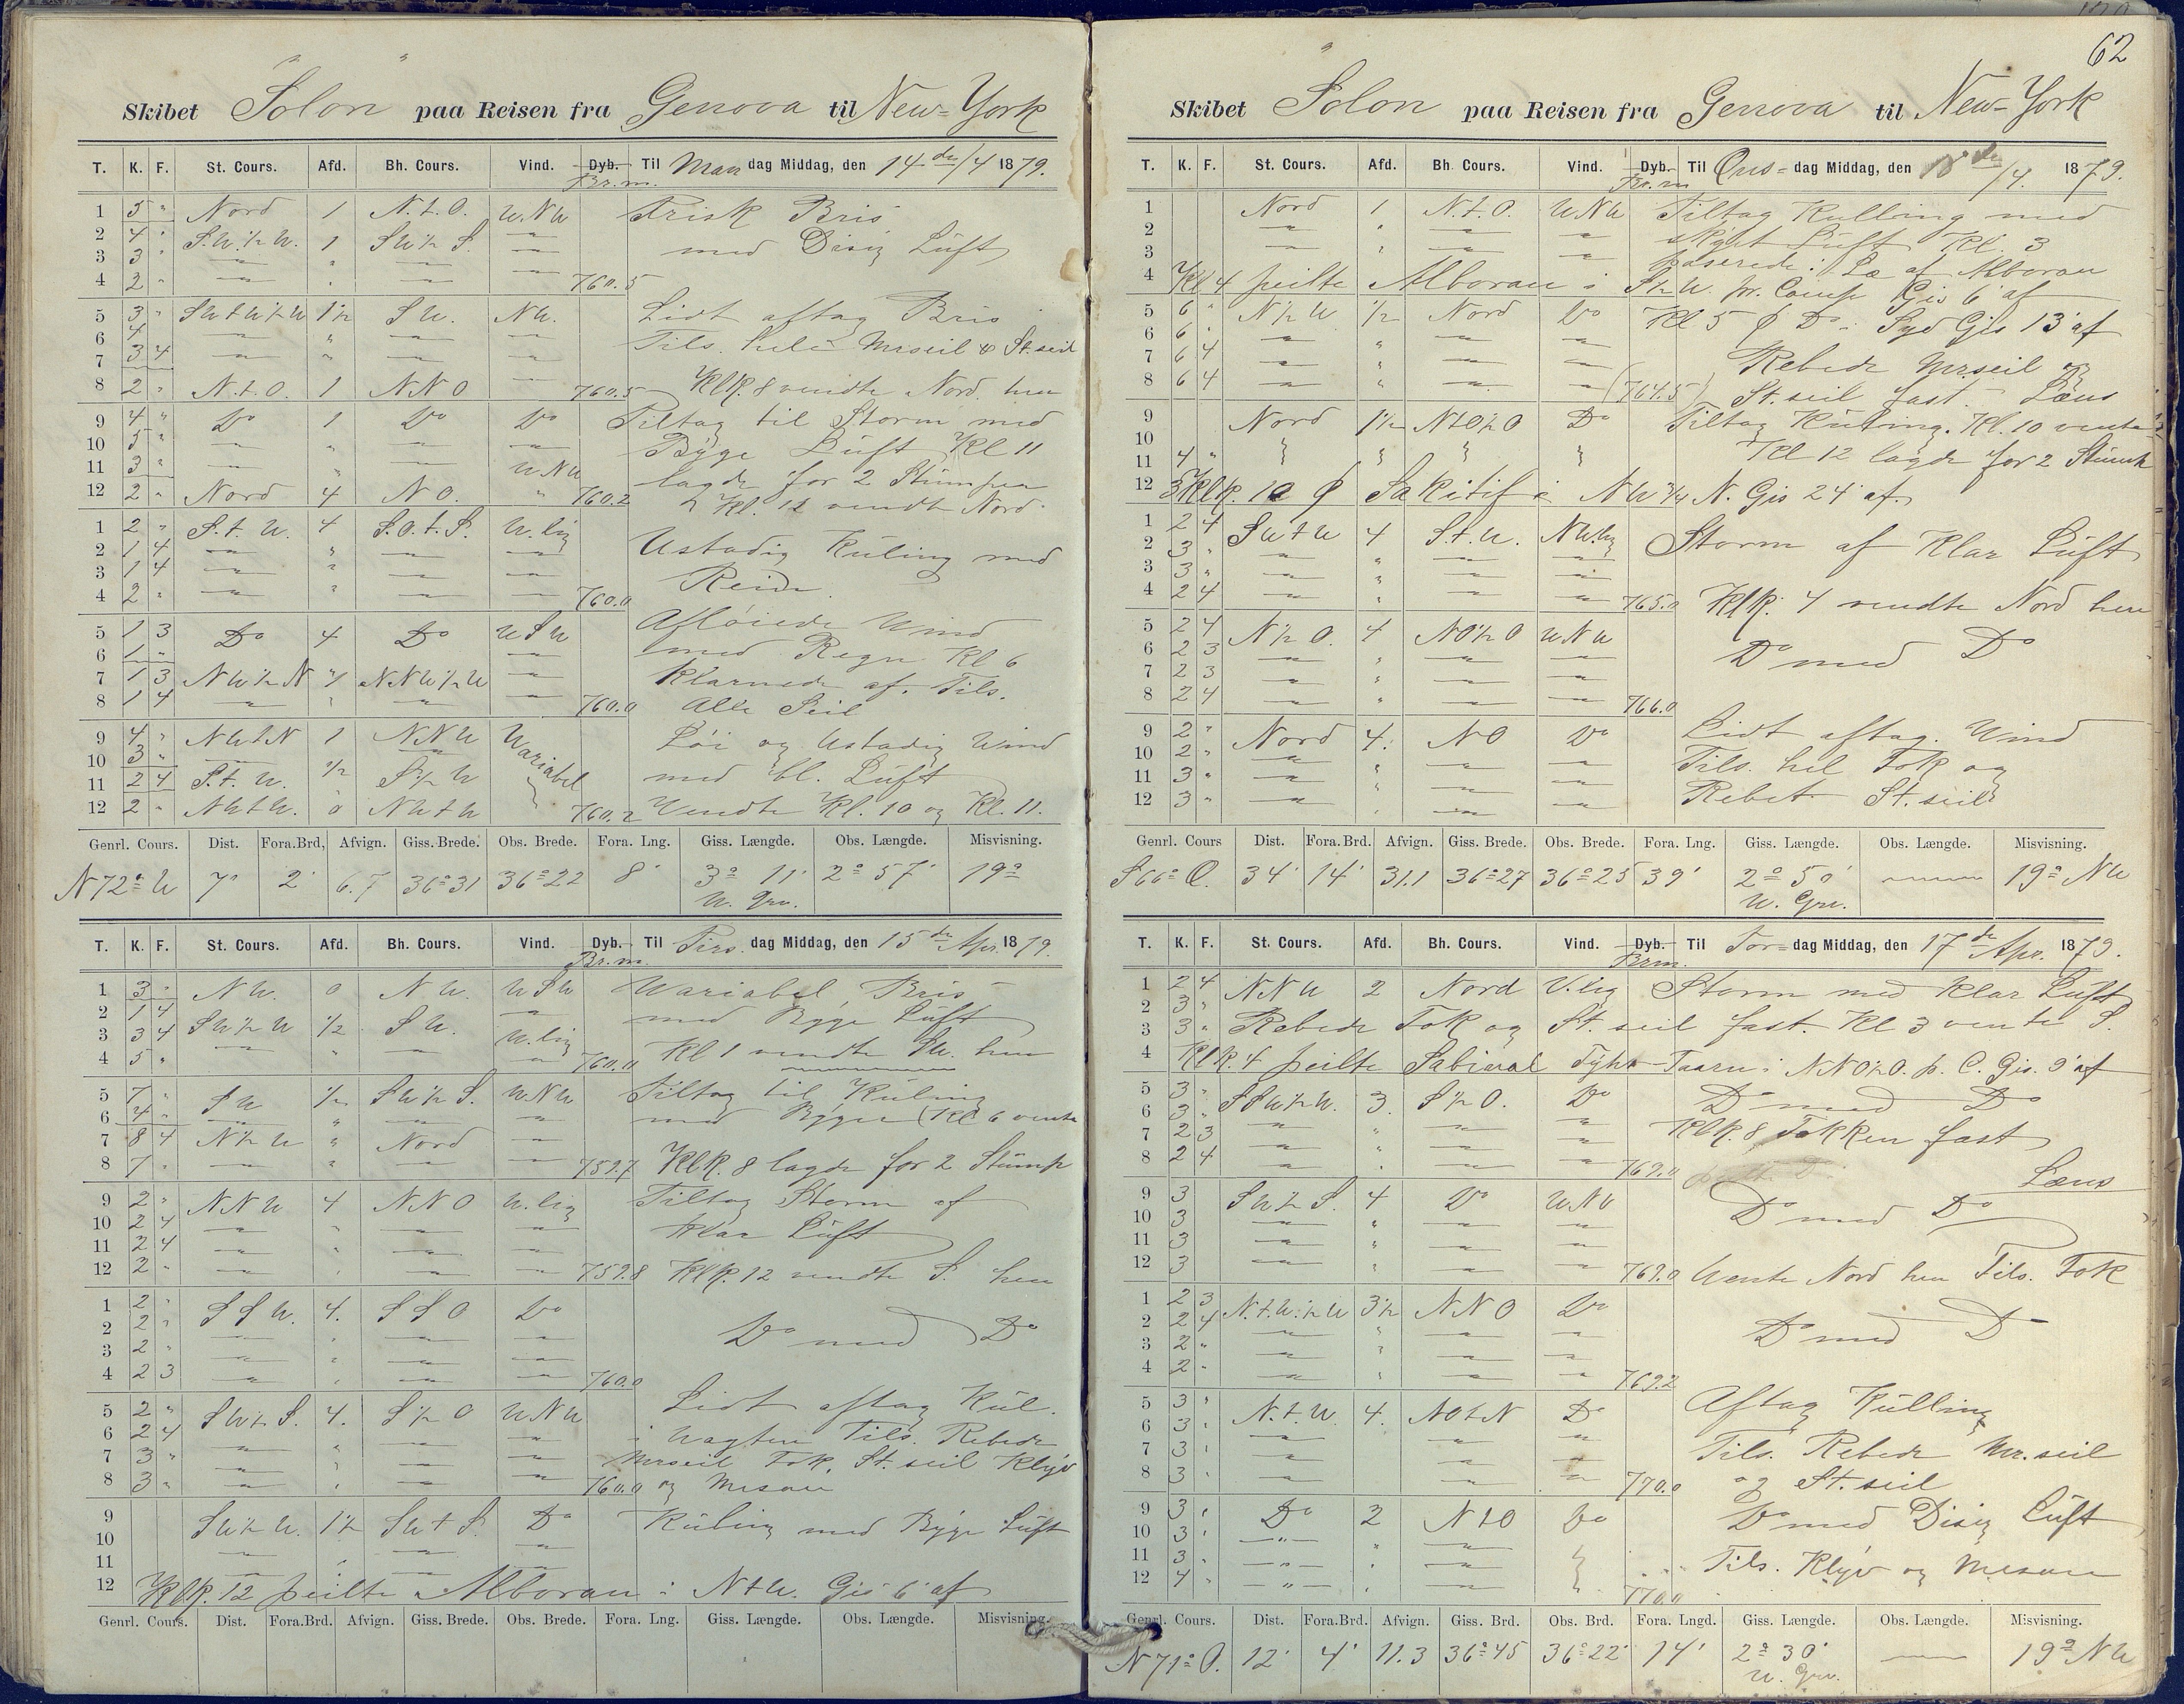 Skibet Solon paa Reisen fra Genova til New-York
T. K. F. St. Cours. Afd. Bh. Cours. Vind. Dyb. Br.m. Til Mandag Middag, den 14de/4 1879.
1 5 " Nord 1 N.t.O. W.NW Frisk Bris
2 4 " S.W.½W. 1 SW½S. — med Disig Luft
3 3 " — " — —
4 2 " — " — — 760.5
5 3 " SWtW½W 1½ SW. NW. Lidt aftag Bris
6 4 — " — — Tils. hele Mrseil & St.seil
7 3 4 — " — —
8 2 " N.t.O. 1 NNO — 760.5 Klk. 8 vendte Nord. hen
9 4 " Do 1 Do Do Tiltag til Storm med
10 5 " — " — — Byge Luft Kl 11
11 3 " — " — W.NW lagde for 2 Stumper
12 2 " Nord 4 NO. " 760.2 Kl. 12 vendte Nord.
1 2 " S.t.W. 4 S.O.t.S. W.lig Ustadig Kuling med
2 1 4 — " — —
3 1 4 — " — — Rein.
4 2 " — " — — 760.0
5 1 3 Do 4 Do WSW Afløiede Wind
6 1 " — med Regn Kl 6
7 1 3 NW½N "1 NNW½W — klarnede af. Tils.
8 1 4 — " — — 760.0 Alle Seil
9 4 " NWtN 1 NNW Wariabel Løi og Ustadig Wind
10 3 " — — med bl. Luft
11 2 4 S.t.W. ½ S½W
12 2 " NWtW. 0 NWtW 760.2 Vendte Kl. 10 og Kl. 11.
Genrl. Cours. Dist. Fora.Brd, Afvign. Giss. Brede. Obs. Brede. Fora. Lng. Giss. Længde. Obs. Længde. Misvisning.
N72°W 7' 2' 6.7 36°31 36°22 8' 3° 11' W. Grw. 2°57' 19°
T. K. F. St. Cours. Afd. Bh. Cours. Vind. Dyb. Br.m. Til Tirs. dag Middag, den 15de Apr. 1879.
1 3 " NW. 0 NW. WSW Wariabel Bris
2 1 4 — med Byge Luft
3 3 4 SW½W ½ SW. W.lig
4 5 " — " — — 760.0 Kl 1 vendte SW. hen
5 7 " SW ½ SW½S. WNW Tiltag til Kuling
6 4 " — " — — med Byger (Kl 6 vente
7 8 4 N½W " Nord —
8 7 " — " — — 759.7 Klk. 8 lagde for 2 Stump
9 2 " NNW 4 NNO W.lig Tiltag Storm af
10 2 4 — " — — klar Luft
11 2 4 — " — —
12 2 " — " — — 759.8 Klk. 12 vendte S. hen
1 2 " SSW. 4. SSO Do
2 2 " — " — — Do med Do
3 2 " — " — —
4 2 3 — " — — 760.0
5 2 " SW½S. 4. S½O WNW Lidt aftag Kul.
6 2 4 — " — — i Vagten Tils. Rebede
7 3 " — " — — Mrseil Fok, St.seil Klyv
8 3 " — " — — 760.0 og Mesan
9 SW½W. 1½ SWtS. Do Kuling med Byge Luft
10 — " — —
11 — " — —
12 Klk. 12 peilte Alboran i NtW. Gis 6' af
Genrl. Cours. Dist. Fora.Brd. Afvign. Giss. Brede. Obs. Brede. Fora. Lng. Giss. Længde. Obs. Længde. Misvisning.
62
Skibet Solon paa Reisen fra Genova til New-York
T. K. F. St. Cours. Afd. Bh. Cours. Vind. Dyb. Br.m Til Ons- dag Middag, den 16de/4. 1879.
1 Nord 1 N.t.O. WNW Tiltag Kulling med
2 — " — — skyet Luft Kl. 3
3 — " — — paserede i Læ af Alboran
4 Klk 4 peilte Alboran i S½W. pr. Comp Gis 6' af
5 6 " N½W ½ Nord Do Kl 5 Do i Syd Gis 13' af
6 6 " — " — —
7 6 4 — " — — Rebede Mrseil og
8 6 4 — " — — (764.5) St.seil fast. Læns
9 Nord 1½ NtO½O Do Tiltag Kuling. Kl. 10 vente
10
11 4 " Kl 12 lagde for 2 Stump
12 3 Klk. 10 Sakitif i NW¾N. Gis 24' af.
1 2 4 SWtW 4 S.t.W. NW.lig Storm af Klar Luft
2 3 " — " — —
3 3 " — " — —
4 2 4 — " — — 765.0 Klk. 4 vendte Nord hen
5 2 4 N½O. 4 NO½O WNW
6 2 3 — " — — Do med Do
7 2 3 — " — —
8 2 4 — " — — 766.0
9 2 " Nord 4. NO Do Lidt aftag. Wind
10 2 " — " — — Tils. hel Fok og
11 3 " — " — — Rebet St.seil
12 3 " — " — —
Genrl. Cours Dist. Fora.Brd. Afvign. Giss. Brede. Obs. Brede. Fora. Lng. Giss. Længde. Obs. Længde. Misvisning.
S66°O. 34' 14' 31.1 36°27 36°25 39' 2°50' W. Grw. — 19° NW
T. K. F. St. Cours. Afd. Bh. Cours. Vind. Dyb. Brm. Til Tors- dag Middag, den 17de Apr. 1879.
1 2 4 NNW 2 Nord V.lig Storm med Klar Luft
2 3 "
3 3 " Rebede Fok og St. seil fast. Kl 3 vente S.
4 Klk. 4 peilte Sabinal Fyhr-Taarn i NNO½O. p. C. Gis. 9' af
5 3 " SSW½W. 3. S½O. Do Do med Do
6 3 " — " — —
7 2 3 — " — — Klk. 8 Fokken fast
8 2 4 — " — — 769.0 Læns
9 3 SW½S. 4 Do WNW Do med Do
10 3 — " — —
11 3 — " — —
12 3 — " — — 769.0 Vente Nord hen Tils. Fok
1 2 3 N.t.W.½W 3½ NNO Do
2 2 4 — " — — Do med Do
3 2 " — " — —
4 2 " — " — — 769.2
5 3 " N.t.W. 4. NOtN Do Aftag Kulling
6 3 " — — —
7 3 " — — — Tils. Rebede Mr.seil
8 3 " — — — 770.0 og St.seil
9 3 " Do 2 NtO Do Do med Disig Luft
10 3 " — " — —
11 3 " — " — Tils. Klyv og Mesan
12 4 " — " — 770.0
Genrl. Cours. Dist. Fora.Brd. Afvign. Giss. Brd. Obs. Brd. Fora. Lngd. Giss. Længde. Obs. Længde. Misvisning.
N71°O. 12' 4' 11.3 36°45 36°22' 14' 2°30' W. Grw. — 19° NW